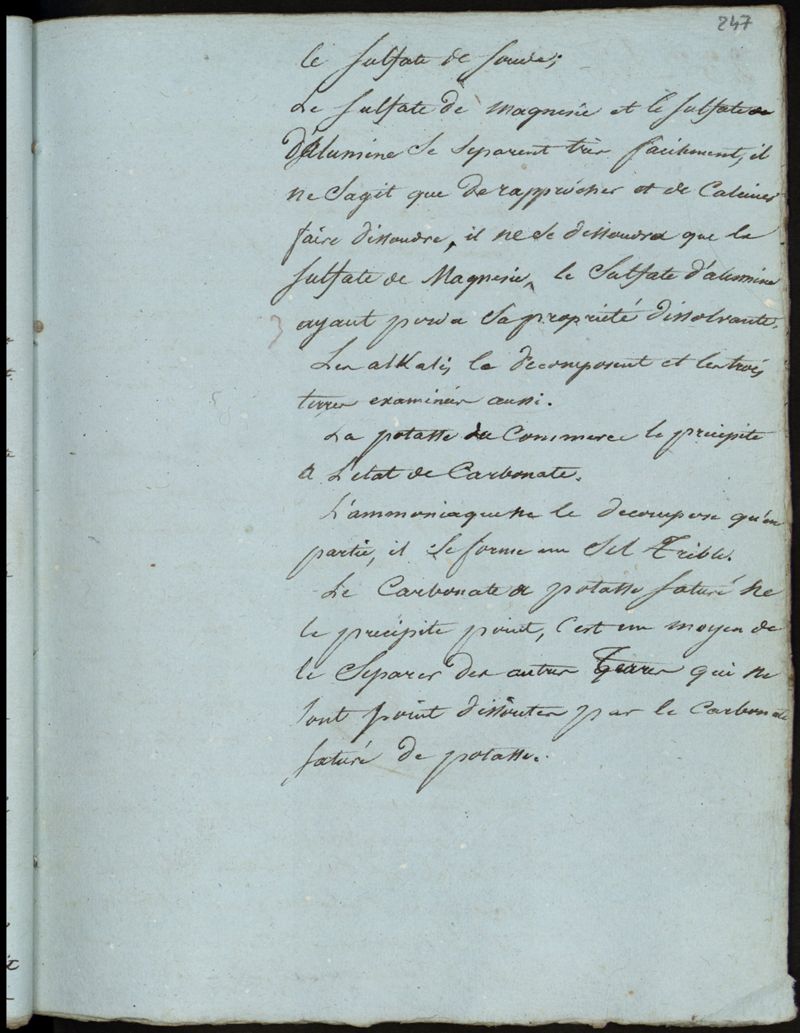 247
le sulfate de soude;
Le sulfate de magnesie et le sulfate de
D'alumine se separent très facilement, il
ne sagit que de rapprocher et de Calciner
faire dissoudre, il ne se dissoudra que le
sulfate de Magnesie, le Sulfate d'alumine
ayant perdu sa propriété dissolvante.
Les alkalis le decomposent et les trois
terres examinées aussi.
La potasse du Commerce le precipite
a L'etat de Carbonate.
L'ammoniaque ne le decompose qu'en
partie, il se forme un Sel Trible.
Le Carbonate de potasse saturé ne
le precipite point, C'est un moyen de
le Separer des autres Terres qui ne
sont point dissoutes par le Carbonate
saturé de potasse.